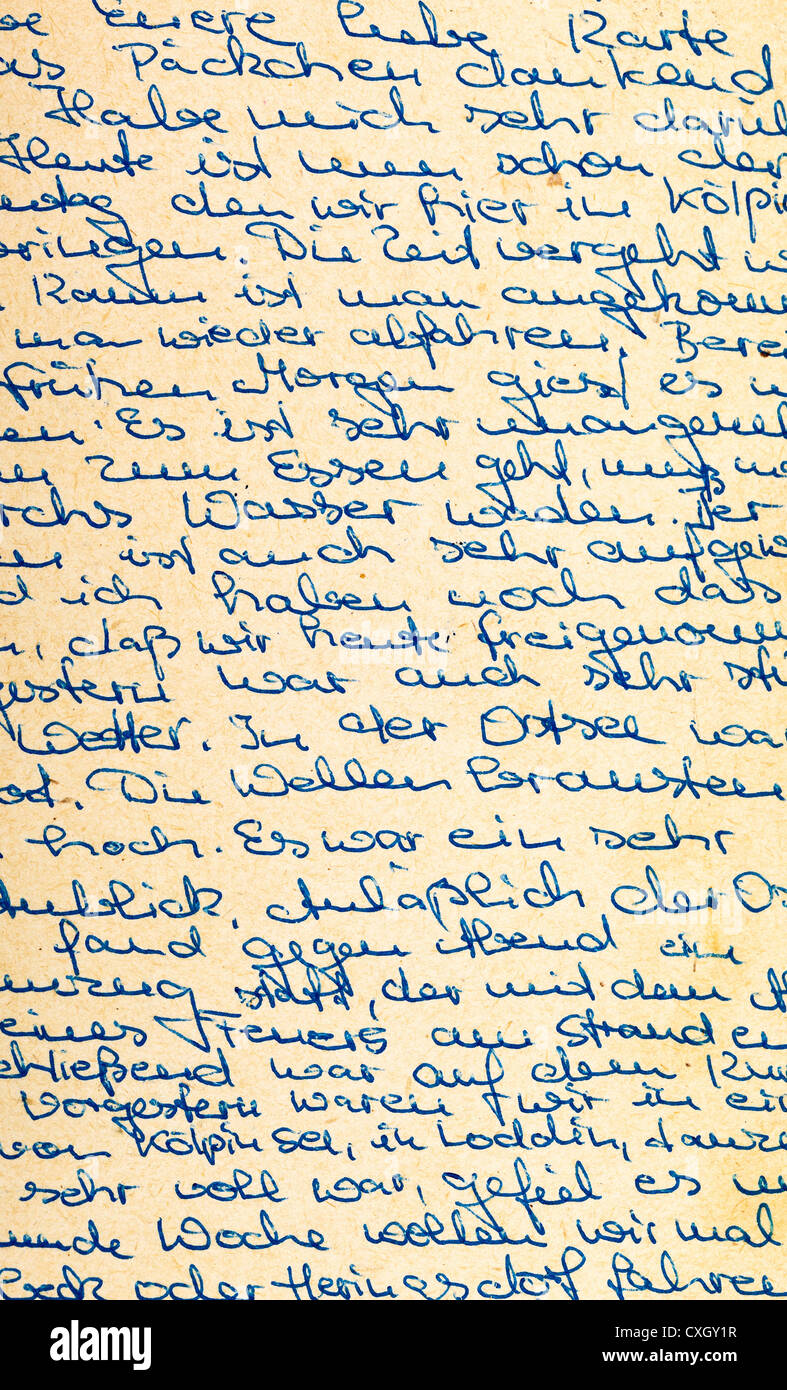 be Euere liebe Karte
as Päckchen dankend
Habe mich sehr darüb
Heute ist nun schon der
den wir hier in Kölpin
bringen. Die Zeit vergeht w
Kaum ist man angekomm
man wieder abfahren. Berei
frühen Morgen giest es
en. Es ist sehr unangeneh
n zum Essen geht, muß ma
rchs Wasser waden. Der
en ist auch sehr aufgew
d ich haben noch das
n, daß wir heute freigenomm
gestern war auch sehr stü
Wetter. In der Ostsee war
ot. Die Wellen brausten
hoch. Es war ein sehr
Anblick. Anläßlich der Os
fand gegen Abend ein
mzug statt, der mit dem A
eines Feuers am Strand en
chließend war auf dem Kur
Vorgestern waren wir in ein
von Kölpinsee, in Loddin, tanze
sehr voll war, gefiel es un
Woche wollen wir mal
oder Heringsdorf fahren
alamy
Image ID: CXGY1R
www.alamy.com